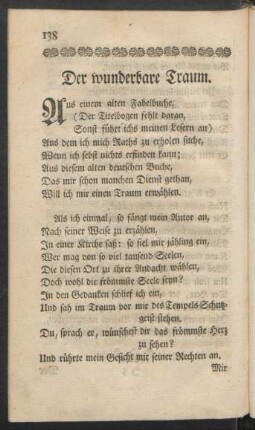 138
Der wunderbare Traum.
Aus einem alten Fabelbuche,
(Der Titelbogen fehlt daran,
Sonst führt ichs meinen Lesern an)
Aus dem ich mich Raths zu erholen suche,
Wenn ich selbst nichts erfinden kann;
Aus diesem alten deutschen Buche,
Das mir schon manchen Dienst gethan,
Will ich mir einen Traum erwählen.
Als ich einmal, so fängt mein Autor an,
Nach seiner Weise zu erzählen,
In einer Kirche saß: so fiel mir jähling ein,
Wer mag von so viel tausend Seelen,
Die diesen Ort zu ihrer Andacht wählen,
Doch wohl die frömmste Seele seyn?
In den Gedanken schlief ich ein,
Und sah im Traum vor mir des Tempels Schutz-
geist stehen.
Du, sprach er, wünschest dir das frömmste Herz
zu sehen?
Und rührte mein Gesicht mit seiner Rechten an.
Mir